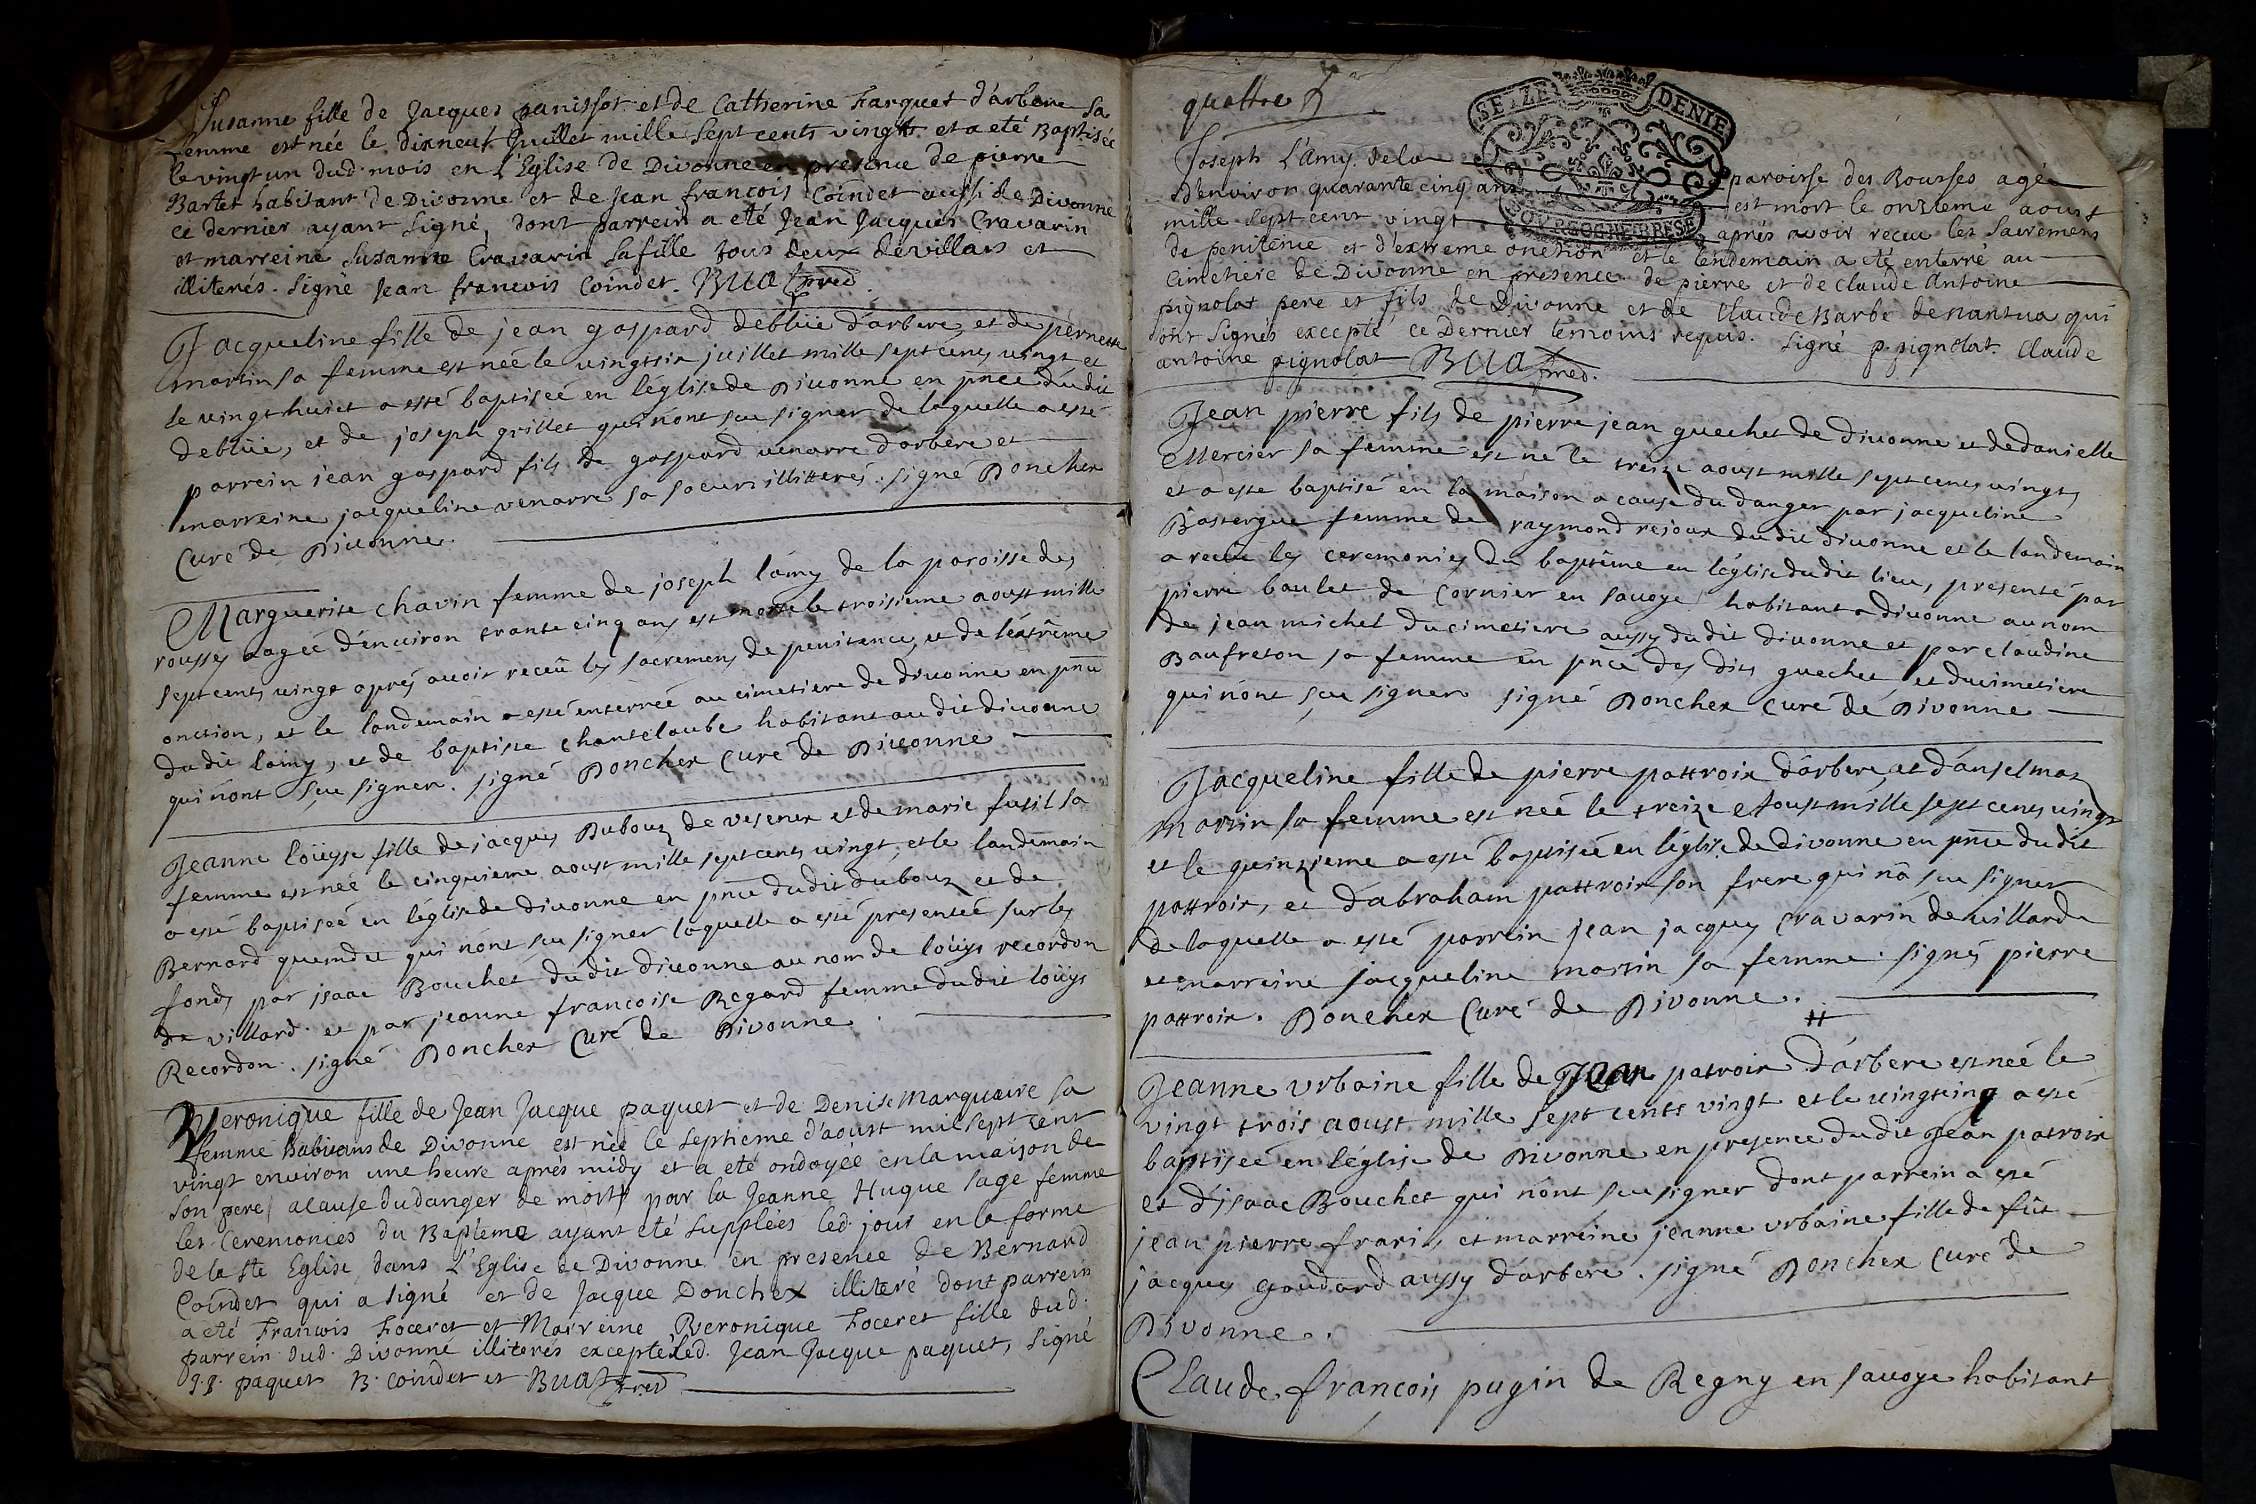 Susanne fille de Jacques panissot et de Catherine Farquet d'arbere sa
femme est née le dixneuf Juillet mille Sept cents vingt et a eté Baptisée
le vingt un dud. mois en l'Eglise de Divonne en presence de pierre
Bartet habitant de Divonne et de Jean françois Coindet aussi de Divonne
ce dernier ayant signé, dont parrein a eté Jean Jacques Cravarin
et marreine Susanne Cravarin sa fille tous deux de villars et
illiterés. Signé Jean francois Coindet. Buat pred.
Jacqueline fille de jean gaspard deblüe d'arbere, et de pernette
martin sa femme est née le vingtsix juillet mille sept cents vingt et
le vingt huict a esté baptiseé en l'église de Divonne en pnce du dit
deblüe, et de joseph grillet qui n'ont sçu signer de laquelle a esté
parrein jean gaspard fils de gaspard venarre d'arbere et
marreine jacqueline venarre sa soeur illitterés. signé Doncher
Curé de Divonne.
Marguerite chavin femme de joseph lamy de la paroisse des
rousses aagée d'environ trante cinq ans est morte le troisieme aoust mille
sept cents vingt aprés avoir reçeu les sacremens de penitence, et de l'extrême
onction, et le landemain a esté enterreé au cimetiere de divonne en pnce
du dit lamy, et de baptiste chanteloube habitant au dit divonne
qui n'ont sçu signer. signé Doncher Curé de Divonne
Jeanne loüyse fille de jacques Dubouz de vesener et de marie fusil sa
femme est née le cinquieme aoust mille sept cents vingt, et le landemain
a esté baptiseé en l'église de divonne en pnce du dit dubouz et de
Bernard quendet qui n'ont sçu signer laquelle a esté presenteé sur les
fonds par isaac Bouchet du dit divonne au nom de loüys recordon
de villard et par jeanne francoise Regard femme du dit loüys
Recordon. signé Doncher Curé de Divonne.
Veronique fille de Jean Jacque paquet et de Denise Marguaire sa
femme habitans de Divonne est née le septieme d'aoust mil sept cent
vingt environ une heure aprés midy et a eté ondoyée en la maison de
son pere, a cause du danger de mort, par la Jeanne Huque sage femme
les Ceremonies du Baptême ayant eté supplées led. jour en la forme
de la Ste Eglise, dans l'Eglise de Divonne en presence de Bernard
Coindet qui a signé et de Jacque Doncher illiteré dont parrein
a eté Francois Foceret et Marreine Veronique Foceret fille dud.
parrein dud. Divonne illiterés excepté led. Jean Jacque paquet, Signé
J.J. paquet B. Coindet et Buat pred
quattre
SEIZE DENIE
BOURGOGNE BRESSE
Joseph L'amy de la paroisse des Rousses agé
d'environ quarante cinq ans est mort le onzieme aoust
mille sept cent vingt aprés avoir receu les Sacremens
de penitence et d'extreme onction et le lendemain a eté enterré au
Cimetiere de Divonne en presence de pierre et de Claude Antoine
pignolat pere et fils de Divonne et de Claude Barbe de nantua qui
ont Signés excepté ce Dernier temoins requis. Signé p. pignolat. Claude
antoine pignolat Buat pred.
Jean pierre fils de pierre jean guechet de divonne et de danielle
Mercier sa femme est né le treize aoust mille sept cents vingt,
et a esté baptisé en la maison a cause du danger par jacqueline
Bastergue femme de raymond rejoux du dit divonne et le landemain
a receu les ceremonies du baptême en l'église du dit lieu, presenté par
pierre baulet de Cornier en savoye habitant a divonne au nom
de jean michel du cimetiere aussy du dit divonne et par claudine
Baufreton sa femme en pnce des dits guechet, et du cimetiere
qui n'ont sçu signer signé Doncher Curé de Divonne
Jacqueline fille de pierre pattroix d'arbere, et d'anselmaz
martin sa femme est neé le treize Aoust mille sept cents vingt
et le quinzieme a esté baptiseé en l'église de divonne en pnce du dit
pattroix, et d'abraham pattroix son frere qui n'a sçu signer
de laquelle a esté parrein jean jacques Cravarin de villard
et marreine jacqueline martin sa femme. signés pierre
pattroix. Doncher Curé de Divonne.
Jeanne urbaine fille de Jean patroix d'arbere est neé le
vingt trois aoust mille sept cents vingt et le vingtcinq a esté
baptiseé en l'église de Divonne en presence du dit Jean patroix
et d'isaac Bouchet qui n'ont sçu signer dont parrein a esté
jean pierre frari, et marreine jeanne urbaine fille de fût
jacques goudard aussy d'arbere. signé Doncher Curé de
Divonne.
Claude françois pugin de Regny en savoye habitant